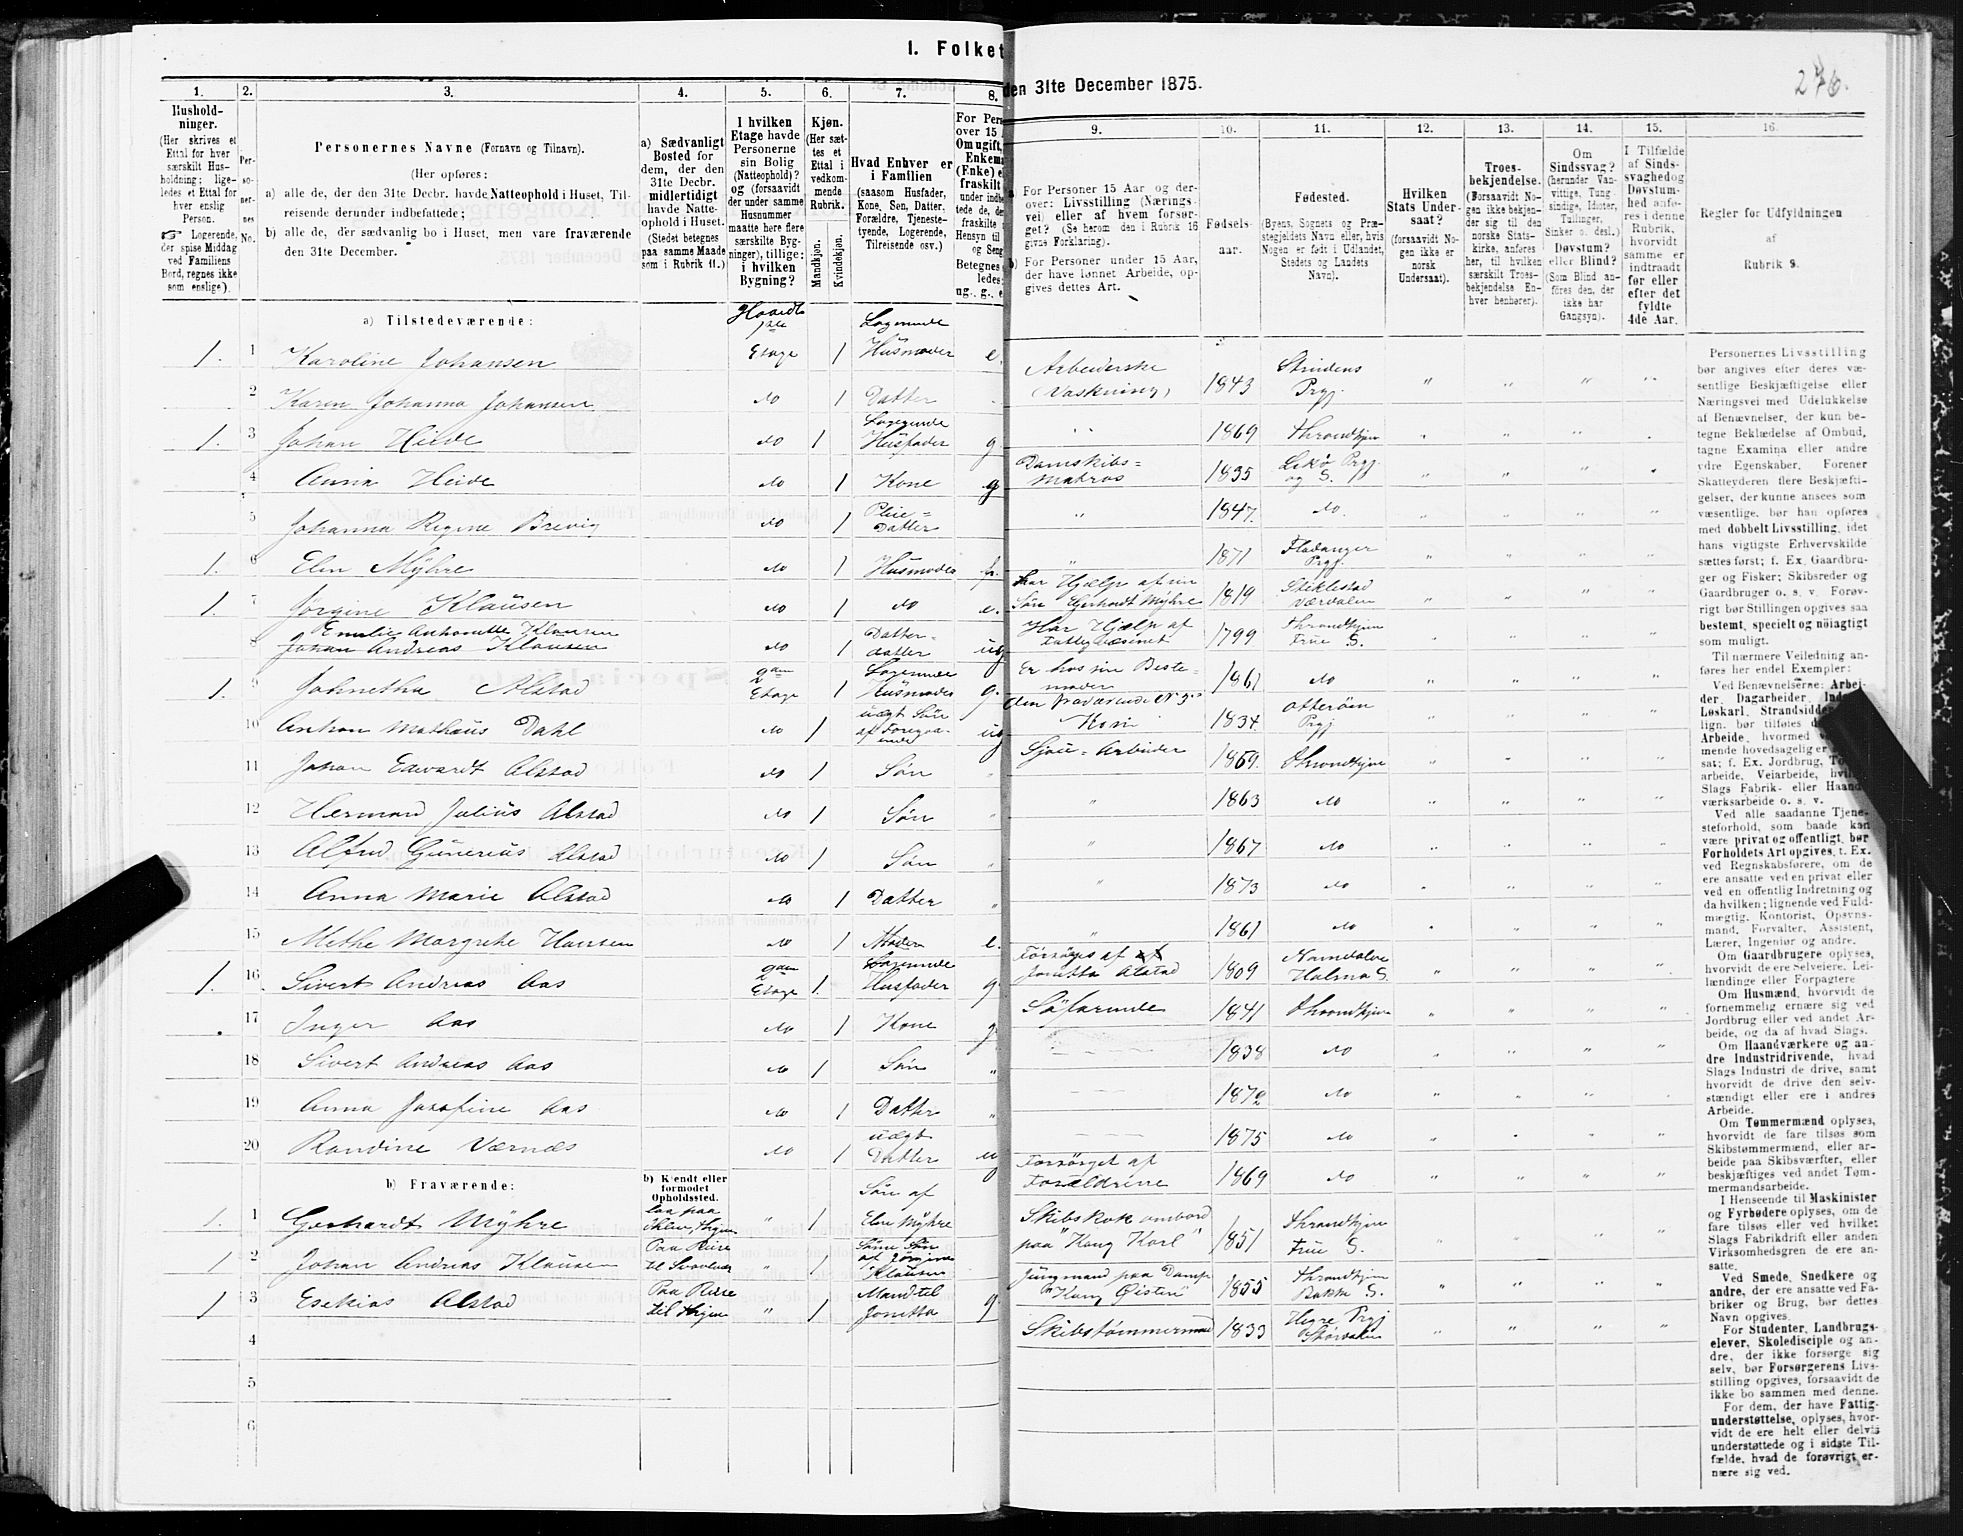 I. Folket
den 31te December 1875.
276.
1.
2.
3.
4.
5.
6.
7.
8.
9.
10.
11.
12.
13.
14.
15.
16.
Hushold-
ninger.
(Her skrives et
Ettal for hver
særskilt Hus-
holdning; lige-
ledes et Ettal for
hver enslig
Person.
☞ Logerende,
der spise Middag
ved Familiens
Bord, regnes ikke
som enslige).
Per-
so-
ner-
nes
No.
Personernes Navne (Fornavn og Tilnavn).
(Her opføres:
a) alle de, der den 31te Decbr. havde Natteophold i Huset, Til-
reisende derunder indbefattede;
b) alle de, der sædvanlig bo i Huset, men vare fraværende
den 31te December.
a) Sædvanligt
Bosted for
dem, der den
31te Decbr.
midlertidigt
havde Natte-
ophold i Huset.
(Stedet betegnes
paa samme Maade
som i Rubrik 11.)
I hvilken
Etage havde
Personerne
sin Bolig
(Natteophold)?
og (forsaavidt
der under samme
Husnummer
maatte høre flere
særskilte Byg-
ninger), tillige:
i hvilken
Bygning?
Kjøn.
(Her sæt-
tes et
Ettal i
vedkom-
mende
Rubrik.
Mandkjøn.
Kvindekjøn.
Hvad Enhver er
i Familien
(saasom Husfader,
Kone, Søn, Datter,
Forældre, Tjeneste-
tyende, Logerende,
Tilreisende osv.)
For Pers
over 15
Om ugift,
Enkema
(Enke) e
fraskilt
a) For Personer 15 Aar og der-
over: Livsstilling (Nærings-
vei) eller af hvem forsør-
get? (Se herom den i Rubrik 16
givne Forklaring).
b) For Personer under 15 Aar,
der have lønnet Arbeide, op-
gives dettes Art.
Fødsels-
aar.
Fødested.
(Byens, Sognets og Præ-
stegjeldets Navn eller, hvis
Nogen er født i Udlandet,
Stedets og Landets
Navn).
Hvilken
Stats Under-
saat?
(forsaavidt No-
gen ikke er
norsk
Undersaat).
Troes-
bekjendelse.
(Forsaavidt No-
gen ikke bekjen-
der sig til den
norske Stats-
kirke, anføres
her, til hvilken
særskilt Troes-
bekjendelse En-
hver henhører).
Om
Sindssvag?
(herunder Van-
vittige, Tung-
sindige, Idioter,
Tullinger,
Sinker o. desl.)
Døvstum?
eller Blind?
(Som Blind an-
føres den, der
ikke har
Gangsyn).
I Tilfælde
af Sinds-
svaghed og
Døvstum-
hed anfø-
res i denne
Rubrik,
hvorvidt
samme er
indtraadt
før eller
efter det
fyldte
4de Aar.
Regler for Udfyldningen
af
Rubrik 9.
a) Tilstedeværende:
1. 1 Karoline Johansen Etage 1 Logerende Husmoder e.
2 Karen Johanna Johansen do 1 Datter
1. 3 Johan Heide do 1 Logerende Husfader g
4 Anna Heide do 1 Kone g
5 Johanna Regine Brevig do 1 Pleie= Datter
1. 6 Elen Myhre do 1 Husmoder fr.
1. 7 Jørgine Klausen do 1 do e.
8 Emilie Anthonette Klausen
Johan Andreas Klausen do 1 Datter= datter ug
1. 9 Johnetha Alstad Etage 1 Logerende Husmoder g.
10 Anton Mathæus Dahl do 1 uægt Søn af Foregaaende ug
11 Johan Edvardt Alstad do 1 Søn
12 Herman Julius Alstad do 1 Søn
13 Alfred Gunerius Alstad do 1 Søn
14 Anna Marie Alstad do 1 Datter
15 Methe Margrethe Hansen do 1 Moder e.
1. 16 Sivert Andreas Aas Etage 1. Logerende Husfader g
17 Inger Aas do 1 Kone g
18 Sivert Andreas Aas do 1 Søn
19 Anna Josefine Aas do 1 Datter
20 Randine Værnæs do 1 uægt Datter ug
Arbeiderske
(Vaskning) 1843 Strindens Prgj.
1869 Throndhjem
Damskibs=
matros 1835 Lekø Prgj. og S.
1847. do.
1871 Fladanger Prgj.
har Hjælp af sin
Søn Gerhardt Myhre 1819 Stiklestad Værdalen
Har Hjælp af
Fattigvæsenet 1799 Throndhjem Frue S.
Er hos sin Beste-
moder 1861 do
den fraværende No 3s
Kone 1834. Otterøen Prgj
Sjou=Arbeider 1859. Throndhjem
1863 do
1867 do
1873 do
1861 do
Forsørges af
Jonetta Alstad 1809 Namdalen Holmo S.
Søfarende 1841 Throndhjem
1838 do
1872 do
1875 do
Forsørget af
Forældrene 1869 do
b) Fraværende:
b) Kjendt eller
formodet
Opholdssted.
1. 1 Gerhardt Myhre laa paa 1 Søn af Elen Myhre
1 2 Johan Andreas Klausen Paa Reise til 1 Søns Søn af Jørgine Klausen
1 3 Esekias Alstad Paa Reise til Thjem 1 Mand til Jonetta g.
4
5
6
Skibskok ombord
paa "Kong Karl" 1851 Throndhjem Frue S.
Jungmand paa Damp
"Kong Øisten" 1855 Throndhjem Bakke S.
Skibstømmermand 1833 Hegre Prgj Størdalen
Personernes Livsstilling
bør angives efter deres væ-
sentlige Beskjæftigelse eller
Næringsvei med Udelukkelse
af Benævnelser, der kun be-
tegne Beklædelse af Ombud,
tagne Examina eller andre
ydre Egenskaber. Forener
Skatteyderen flere Beskjæfti-
gelser, der kunne ansees som
væsentlige, bør han opføres
med dobbelt Livsstilling, idet
hans vigtigste Erhvervskilde
sættes først; f. Ex. Gaardbru-
ger og Fisker; Skibsreder og
Gaardbruger o. s. v. Forøv-
rigt bør Stillingen opgives saa
bestemt, specielt og nøiagtigt
som muligt.
Til nærmere Veiledning an-
føres her endel Exempler:
Ved Benævnelserne: Arbei-
der, Dagarbeider
Løskarl, Strandsidder
lign. bør tilføies
Arbeide, hvormed
mende hovedsagelig er
sat; f. Ex. Jordbrug,
arbeide, Veiarbeide,
Slags Fabrik- eller Haand-
værksarbeide o. s. v.
Ved alle saadanne Tjene-
steforhold, som baade kan
være privat og offentligt, bør
Forholdets Art opgives, t. Ex.
ved Regnskabsførere, om de
ere ansatte ved en privat eller
ved en offentlig Indretning og
da hvilken; lignende ved Fuld-
mægtig, Kontorist, Opsyns-
mand, Forvalter, Assistent,
Lærer, Ingeniør og andre.
Om Gaardbrugere oplyses,
hvorvidt de ere Selveiere, Lei-
lændinge eller Forpagtere.
Om Husmænd, hvorvidt de
fornemmelig ernære sig ved
Jordbrug eller ved andet Ar-
beide, og da af hvad Slags.
Om Haandværkere og an-
dre Industridrivende, hvad
Slags Industri de drive, samt
hvorvidt de drive den selv-
stændigt eller ere i andres
Arbeide.
Om Tømmermænd oplyses,
hvorvidt de fare tilsøs som
Skibstømmermænd, eller ar-
beide paa Skibsværfter, eller
beskjæftiges ved andet Tøm-
mermandsarbeide.
I Henseende til Maskinister
og Fyrbødere oplyses, om de
fare tilsøs eller ved hvilket
Slags Fabrikdrift eller anden
Virksomhedsgren de ere an-
satte.
Ved Smede, Snedkere og
andre, der ere ansatte ved Fa-
briker og Brug, bør dettes
Navn opgives.
For Studenter, Landbrugs-
elever, Skoledisciple og an-
dre, der ikke forsørge sig
selv, bør Forsørgerens Livs-
stilling opgives, forsaavidt de
ikke bo sammen med denne.
For dem, der have Fattig-
understøttelse, oplyses, hvor-
vidt de ere helt eller delvis
understøttede og i sidste Til-
fælde, hvad de forøvrigt er-
nære sig ved.